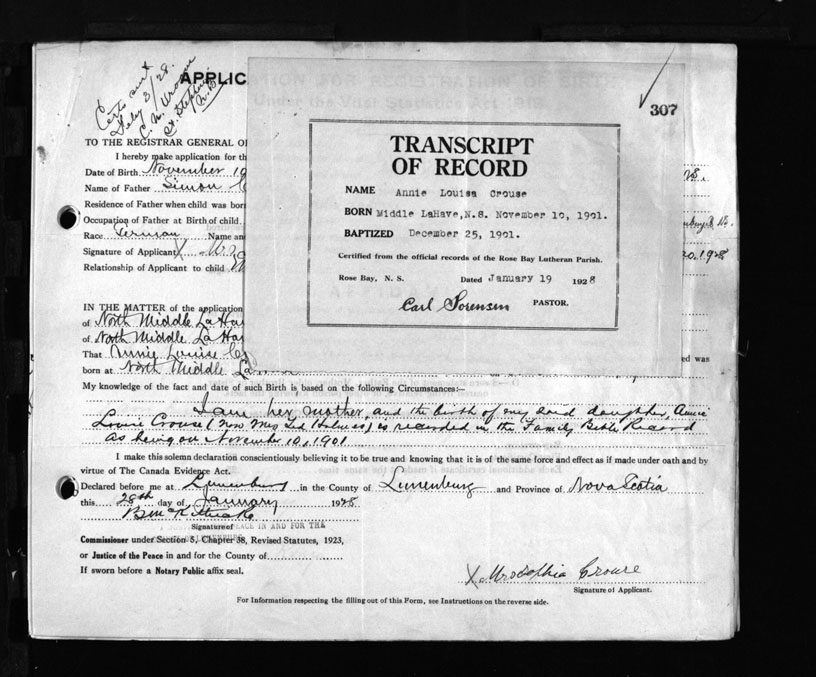 Certs sent
Feby 3/28.
C. N. Crouse
St. Stephen
N.B.
APPLIC
307
TRANSCRIPT
OF RECORD
NAME Annie Louisa Crouse
BORN Middle LaHave, N.S. November 10, 1901.
BAPTIZED December 25, 1901.
Certified from the official records of the Rose Bay Lutheran Parish.
Rose Bay, N. S. Dated January 19 1928
Carl Sorensen PASTOR.
TO THE REGISTRAR GENERAL O
I hereby make application for th
Date of Birth November 10
Name of Father Simon C
Residence of Father when child was born
Occupation of Father at Birth of child
Race German Name an
Signature of Applicant X Mrs
Relationship of Applicant to child M
28.
20.1928
IN THE MATTER of the application
of North Middle La Hav
of North Middle La Hav
That Annie Louise C
ed was
born at North Middle La
My knowledge of the fact and date of such Birth is based on the following Circumstances:—
I am her mother, and the birth of my said daughter, Annie
Louise Crouse (now Mrs Ted Holmes) is recorded in the Family Bible Record
as being on November 10, 1901
I make this solemn declaration conscientiously believing it to be true and knowing that it is of the same force and effect as if made under oath and by
virtue of The Canada Evidence Act.
Declared before me at Lunenburg in the County of Lunenburg and Province of Nova Scotia
this 28th day of January 1928
Signature of PEACE IN AND FOR THE
Commissioner under Section 5, Chapter 38, Revised Statutes, 1923,
or Justice of the Peace in and for the County of
If sworn before a Notary Public affix seal.
X Mrs Sophia Crouse
Signature of Applicant.
For Information respecting the filling out of this Form, see Instructions on the reverse side.